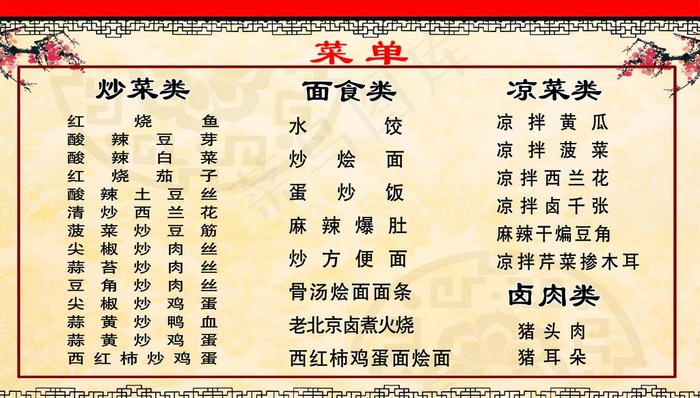 菜单
炒菜类
红烧鱼
酸辣豆芽
酸辣白菜
红烧茄子
酸辣土豆丝
清炒西兰花
菠菜炒豆筋
尖椒炒肉丝
蒜苔炒肉丝
豆角炒肉丝
尖椒炒鸡蛋
蒜黄炒鸭血
蒜黄炒鸡蛋
西红柿炒鸡蛋
面食类
水饺
炒烩面
蛋炒饭
麻辣爆肚
炒方便面
骨汤烩面面条
老北京卤煮火烧
西红柿鸡蛋面烩面
凉菜类
凉拌黄瓜
凉拌菠菜
凉拌西兰花
凉拌卤千张
麻辣干煸豆角
凉拌芹菜掺木耳
卤肉类
猪头肉
猪耳朵